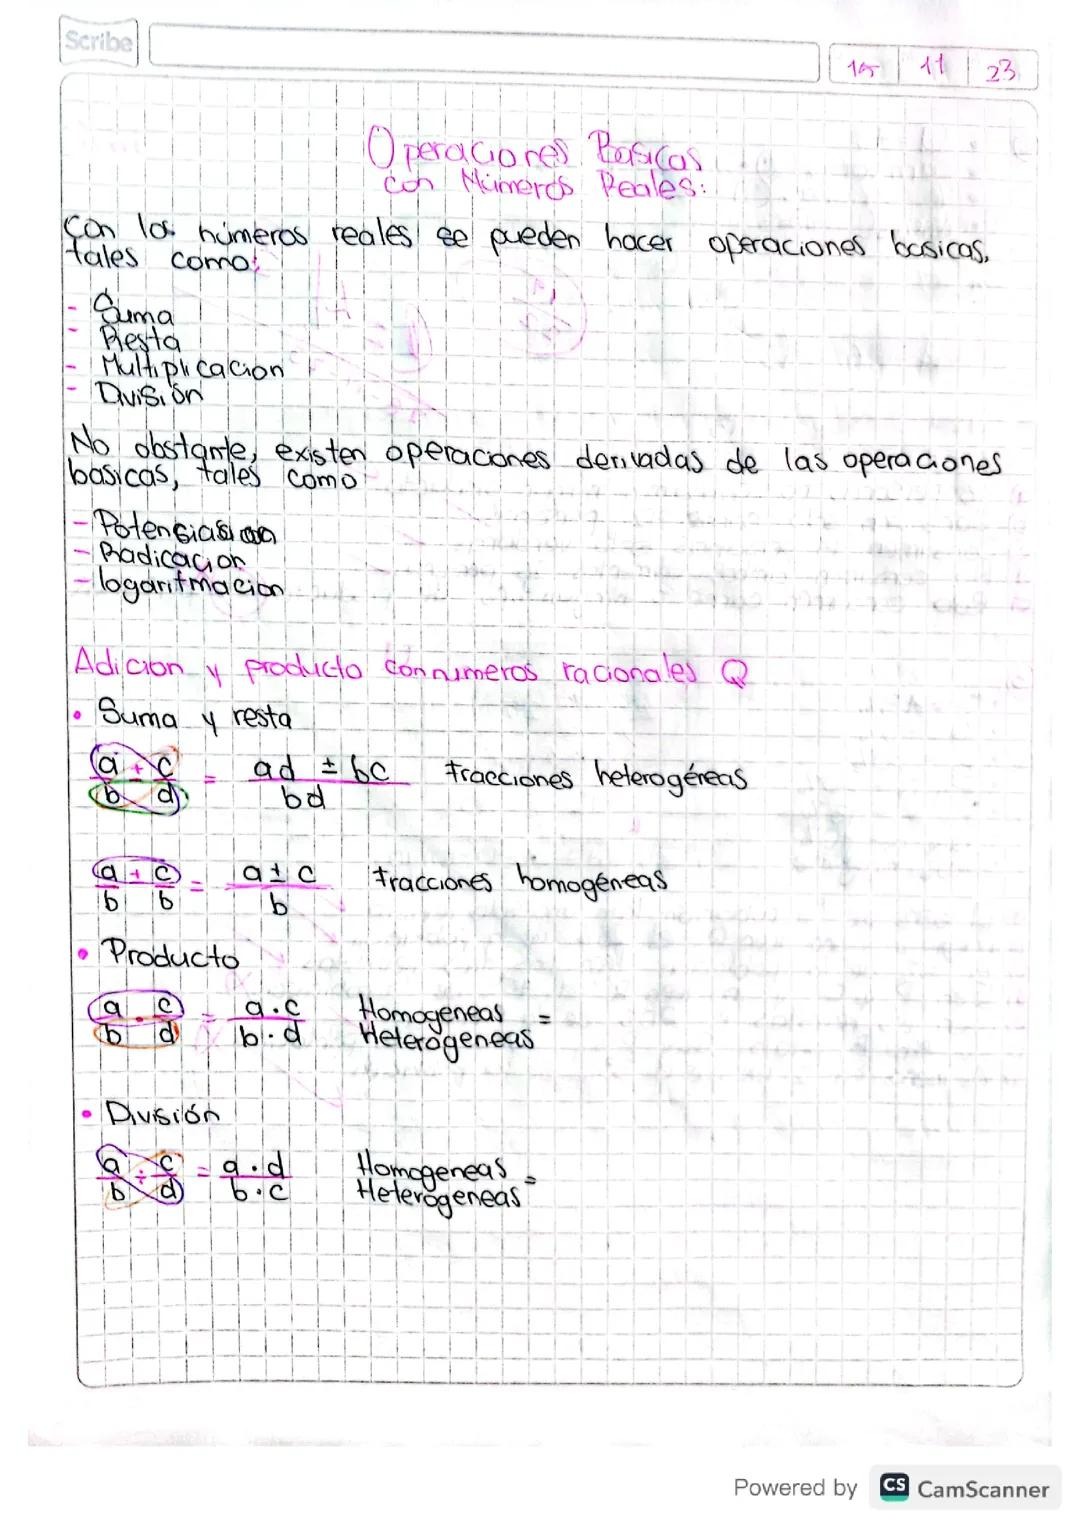 Scribe
15 11 23
Operaciones Basicas
con Números Reales:
Con los números reales se pueden hacer operaciones basicas,
tales como:
- Suma
- Resta
- Multiplicacion
- División
No obstante, existen operaciones derivadas de las operaciones
basicas, tales como
- Potensiasion
- Radicacion
- logaritmacion
Adicion y producto con numeros racionales Q
• Suma y resta
a/b ± c/d = ad ± bc / bd fracciones heterogéreas
a/b ± c/b = a ± c / b fracciones homogéneas
• Producto
a/b . c/d = a . c / b . d Homogeneas =
Heterogeneas
• División
a/b ÷ c/d = a . d / b . c Homogeneas =
Heterogeneas
Powered by CS CamScanner